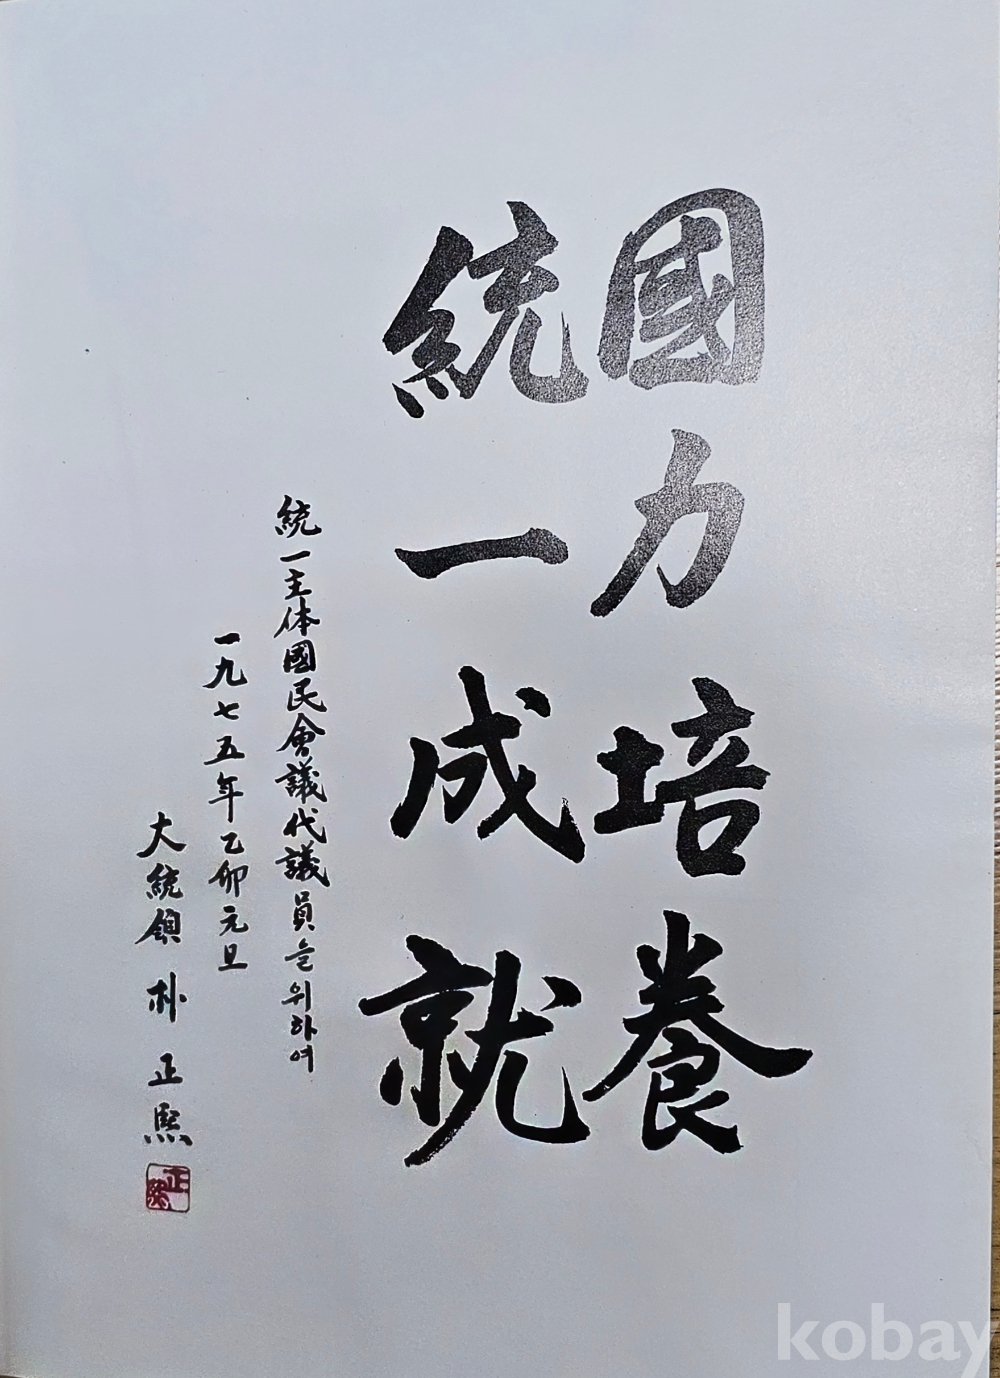 國力培養
統一成就
統一主体國民會議代議員을위하여
一九七五年乙卯元旦
大統領 朴正熙
正熙
kobay